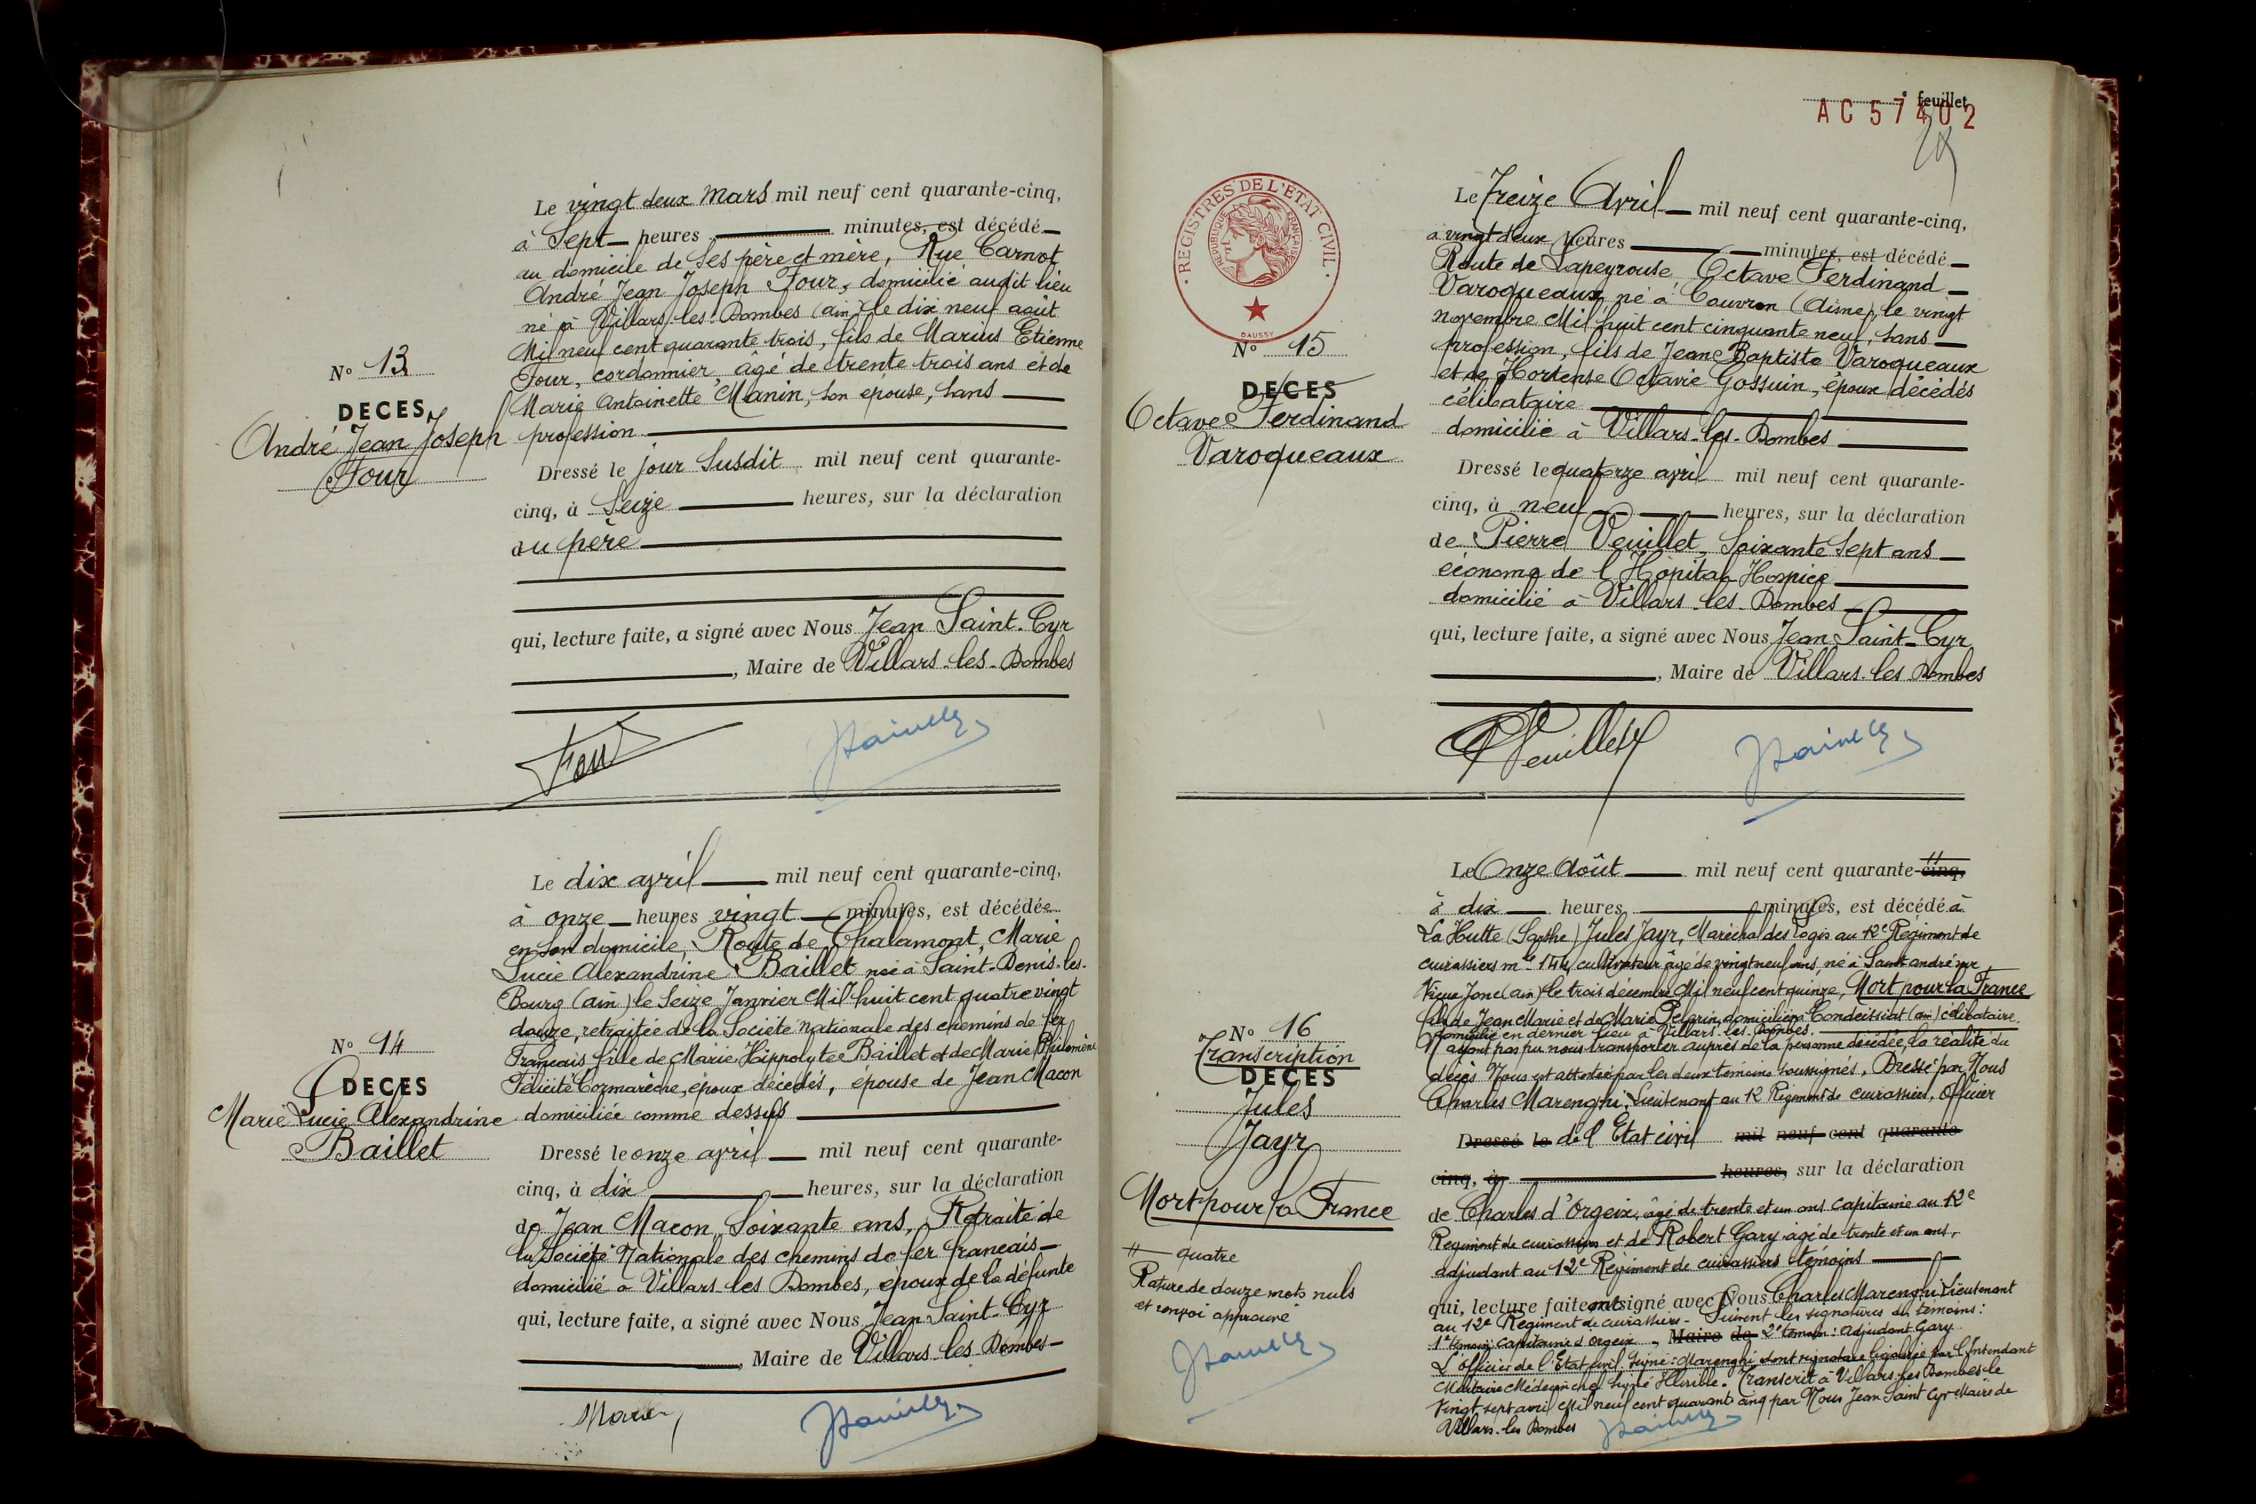 Le vingt deux Mars mil neuf cent quarante-cinq,
à Sept heures minutes, est décédé
au domicile de ses père et mère, Rue Carnot
André Jean Joseph Four, domicilié audit lieu
né à Villars-les-Dombes (ain) le dix neuf août
Mil neuf cent quarante trois, fils de Marius Etienne
Four, cordonnier, âgé de trente trois ans et de
Marie Antoinette Manin, son épouse, sans
profession
N° 13
DECES
André Jean Joseph
Four
Dressé le jour susdit mil neuf cent quarante-
cinq, à Seize heures, sur la déclaration
du père
qui, lecture faite, a signé avec Nous Jean Saint-Cyr
, Maire de Villars-les-Dombes
Four
JSaintCyr
Le dix avril mil neuf cent quarante-cinq,
à onze heures vingt minutes, est décédée
en son domicile, Route de Chalamont, Marie
Lucie Alexandrine Baillet née à Saint-Denis-les-
Bourg (ain) le Seize Janvier Mil huit cent quatre vingt
douze, retraitée de la Société nationale des chemins de fer
Français fille de Marie Hippolyte Baillet et de Marie Philomène
Félicité Cormarèche, époux décédés, épouse de Jean Macon
domiciliée comme dessus
N° 14
DECES
Marie Lucie Alexandrine
Baillet
Dressé le onze avril mil neuf cent quarante-
cinq, à dix heures, sur la déclaration
de Jean Macon, Soixante ans, Retraité de
la Société Nationale des chemins de fer francais
domicilié à Villars-les-Dombes, époux de la défunte
qui, lecture faite, a signé avec Nous Jean Saint-Cyr
, Maire de Villars-les-Dombes
Macon
JSaintCyr
feuillet
AC 57402
REGISTRES DE L'ETAT CIVIL
REPUBLIQUE FRANÇAISE
DAUSSY
Le Treize Avril mil neuf cent quarante-cinq,
à vingt deux heures minutes, est décédé
Route de Lapeyrouse, Octave Ferdinand
Varoqueaux né à Couvron (Aisne), le vingt
novembre Mil huit cent cinquante neuf, sans
profession, fils de Jean Baptiste Varoqueaux
et de Hortense Octavie Gossuin, époux décédés
célibataire
domicilié à Villars-les-Dombes
N° 15
DECES
Octave Ferdinand
Varoqueaux
Dressé le quatorze avril mil neuf cent quarante-
cinq, à neuf heures, sur la déclaration
de Pierre Veuillet, Soixante Sept ans
économe de l'Hôpital-Hospice
domicilié à Villars-les-Dombes
qui, lecture faite, a signé avec Nous Jean Saint-Cyr
, Maire de Villars-les-Dombes
PVeuillet
JSaintCyr
Le Onze Août mil neuf cent quarante-cinq,
à dix heures minutes, est décédé à
La Hutte (Sarthe) Jules Jayr, Maréchal des logis au 12e Régiment de
cuirassiers mle 144, cultivateur âgé de vingt neuf ans, né à Saint andré sur
Vieux Jonc (ain) le trois décembre Mil neuf cent quinze, Mort pour la France
fils de Jean Marie et de Marie Pelgrin, domiciliés à Condeissiat (ain) célibataire
domicilié en dernier lieu à Villars-les-Dombes.
N'ayant pas pu nous transporter auprès de la personne décédée, la réalité du
décès Nous est attestée par les deux témoins soussignés. Dressé par Nous
Charles Marenghi, Lieutenant au 12 Régiment de cuirassiers, Officier
Dressé le de l'Etat civil mil neuf cent quarante
cinq, à heures, sur la déclaration
N° 16
Transcription
DECES
Jules
Jayr
Mort pour la France
quatre
Rature de douze mots nuls
et renvoi approuvé
JSaintCyr
de Charles d'Orgeix, âgé de trente et un ans capitaine au 12e
Régiment de cuirassiers et de Robert Gary âgé de trente et un ans,
adjudant au 12e Régiment de cuirassiers témoins
qui, lecture faite ont signé avec Nous Charles Marenghi, Lieutenant
au 12e Régiment de cuirassiers. Suivent les signatures des témoins:
1er témoin: Capitaine d'Orgeix, Maire de 2e témoin: adjudant Gary
L'officier de l'Etat civil, Signé: Marenghi dont signature légalisée par l'Intendant
Militaire Médecin chef signé. Transcrit à Villars-les-Dombes le
Vingt sept avril Mil neuf cent quarante cinq par Nous Jean Saint Cyr Maire de
Villars-les-Dombes JSaintCyr